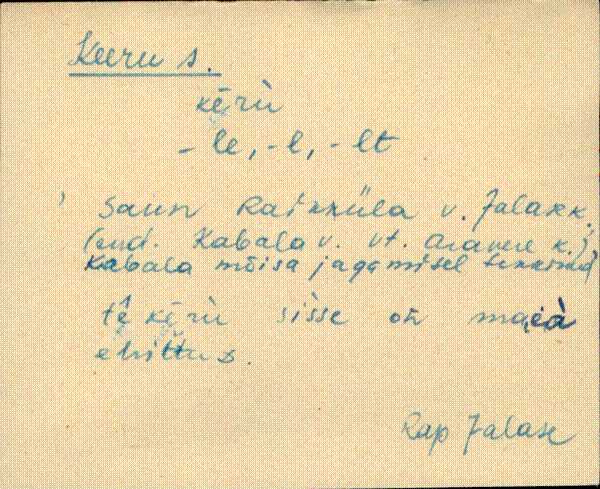 Keeru s.
kēr̀ù
-le, -l, -lt
Saun Raikküla v. Jalakk.
(end. Kabala v. vt. Aravere k.)
Kabala mõisa jagamisel tekkinud
tê kēr̀ù sisse on maeà
ehittus.
Rap Jalase